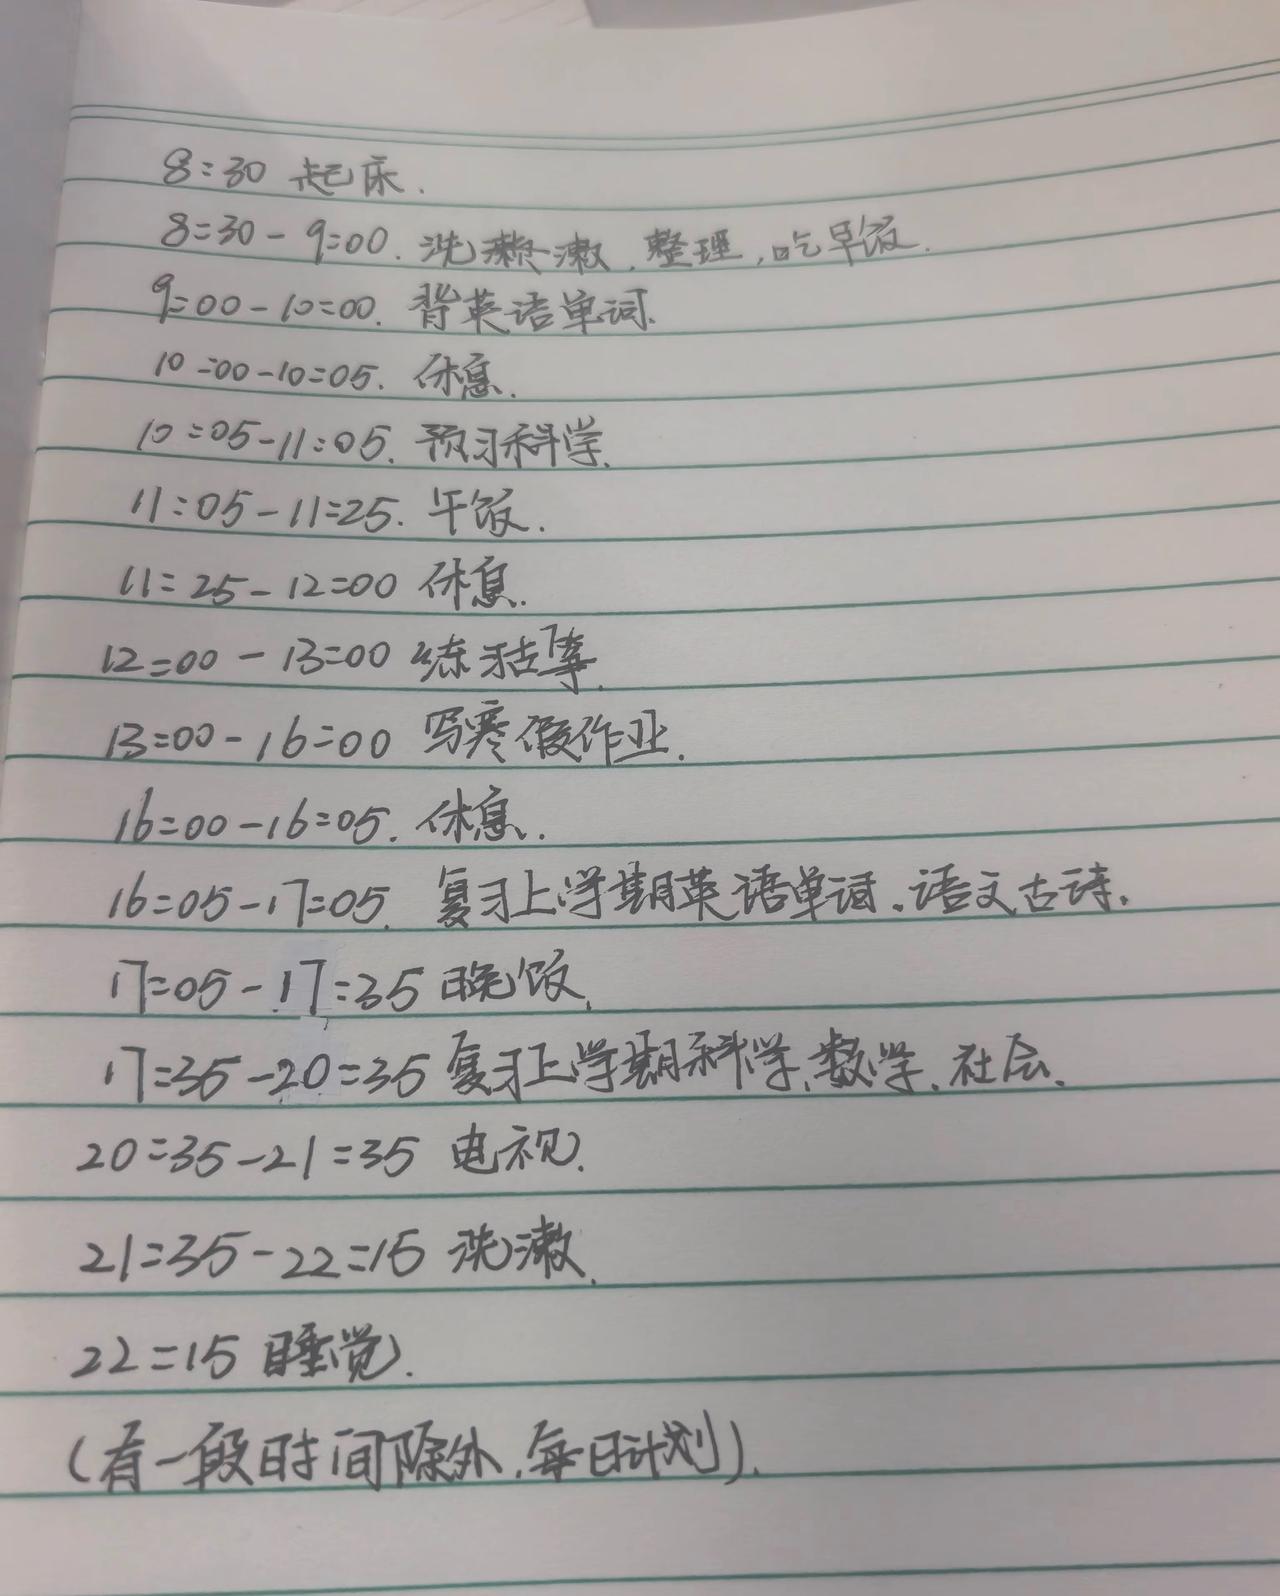 8:30 起床.
8:30-9:00. 洗漱,整理,吃早饭.
9:00-10:00. 背英语单词.
10:00-10:05. 休息.
10:05-11:05. 预习科学.
11:05-11:25. 午饭.
11:25-12:00 休息.
12:00-13:00 练
13:00-16:00 写寒假作业.
16:00-16:05. 休息.
16:05-17:05. 复习上学期英语单词。语文古诗.
17:05-17:35 晚饭.
17:35-20:35 复习上学期科学、数学、社会.
20:35-21:35 电视.
21:35-22:15 洗漱.
22:15 睡觉.
(有一段时间除外,每日计划).